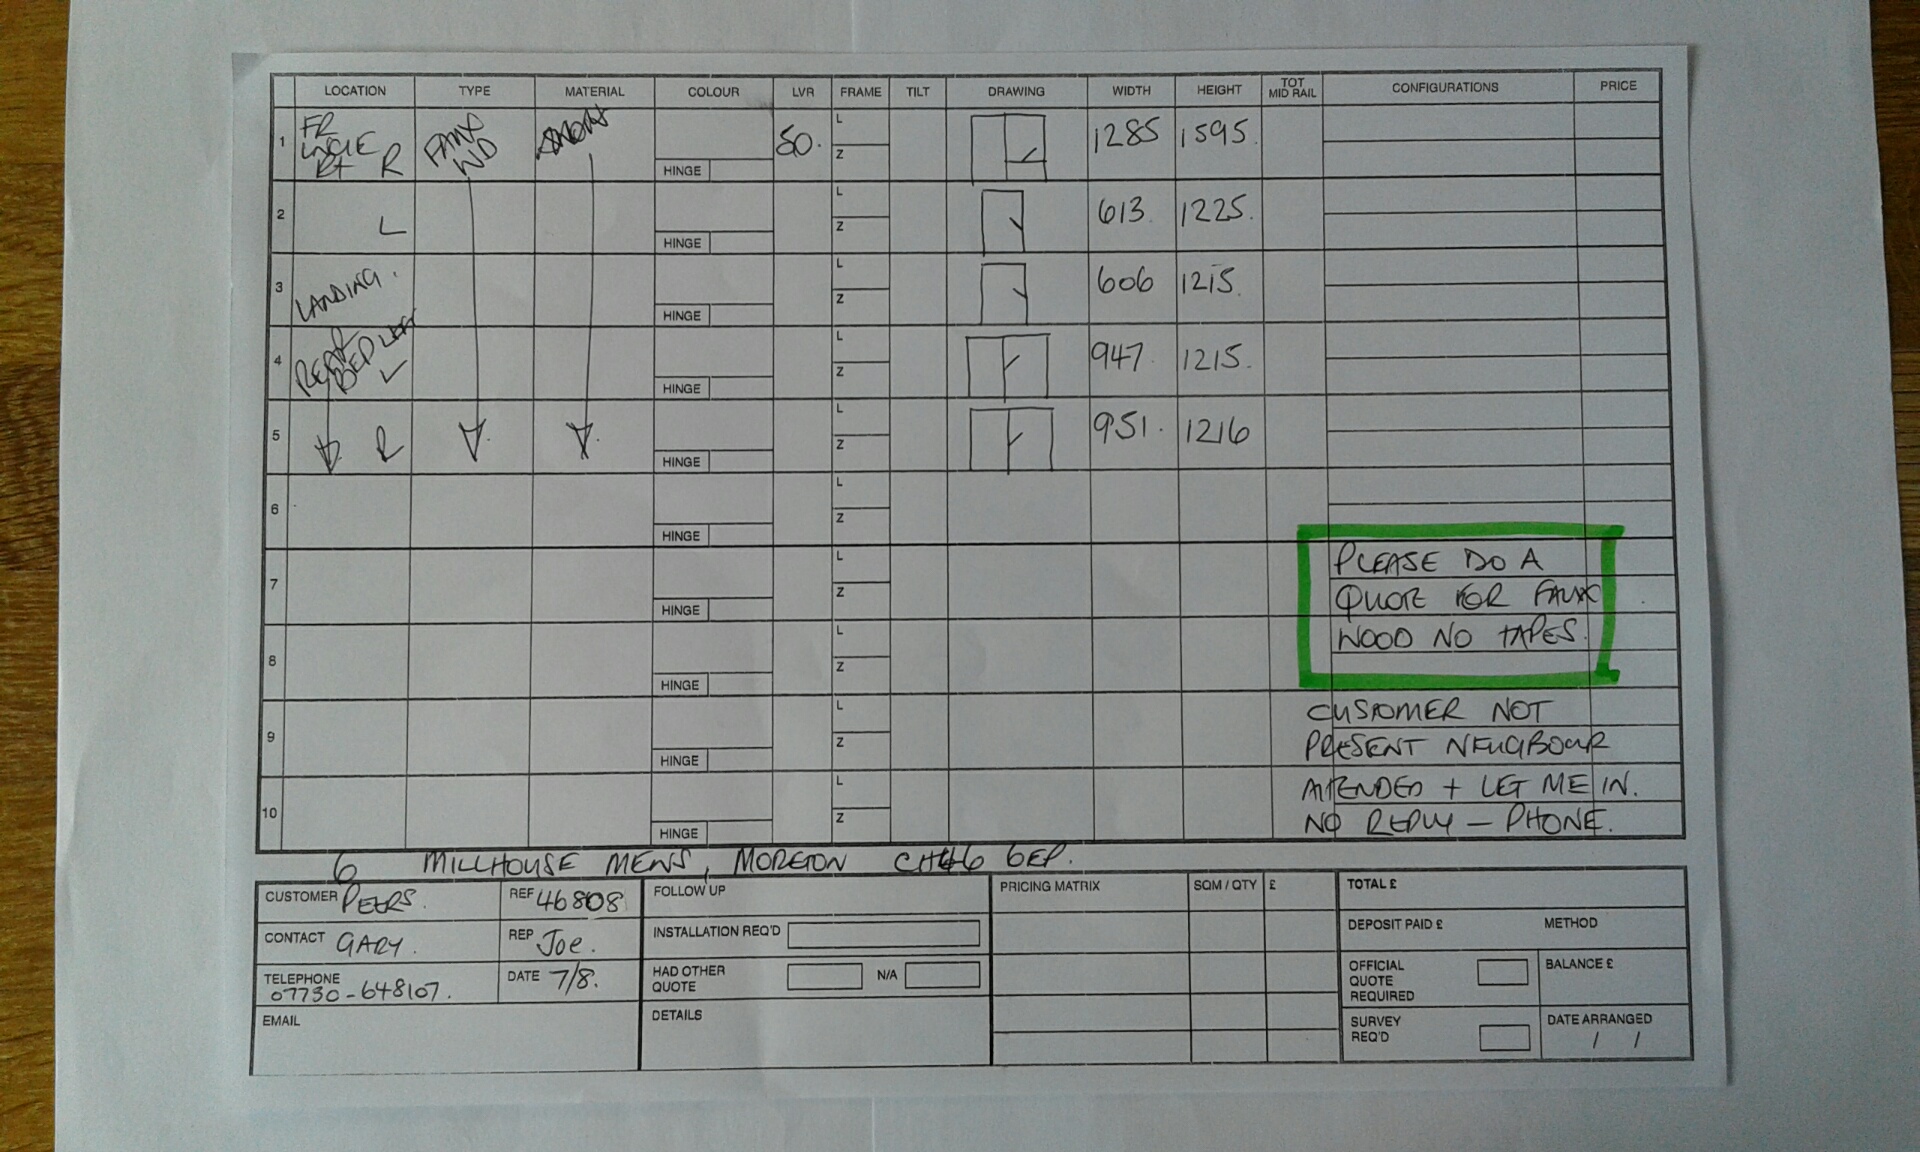 LOCATION TYPE MATERIAL COLOUR LVR FRAME TILT DRAWING WIDTH HEIGHT TOT MID RAIL CONFIGURATIONS PRICE
1 FR R FAUX WD HINGE 50. L Z 1285 1595.
2 L HINGE L Z 613. 1225.
3 LANDING. HINGE L Z 606 1215.
4 REAR BED L HINGE L Z 947. 1215.
5 R HINGE L Z 951. 1216
6 HINGE L Z
7 HINGE L Z
8 HINGE L Z
9 HINGE L Z
10 HINGE L Z
PLEASE DO A
QUOTE FOR FAUX
WOOD NO TAPES.
CUSTOMER NOT
PRESENT NEUGBOUR
ATTENDED + LET ME IN.
NO REPLY - PHONE.
6 MILLHOUSE MEWS, MORETON CH46 6EP.
CUSTOMER PEERS.
REF 46808
CONTACT GARY.
REP Joe.
TELEPHONE
07730-648107.
DATE 7/8.
EMAIL
FOLLOW UP
INSTALLATION REQ'D
HAD OTHER
QUOTE
N/A
DETAILS
PRICING MATRIX SQM / QTY £
TOTAL £
DEPOSIT PAID £ METHOD
OFFICIAL
QUOTE
REQUIRED
BALANCE £
SURVEY
REQ'D
DATE ARRANGED
/ /